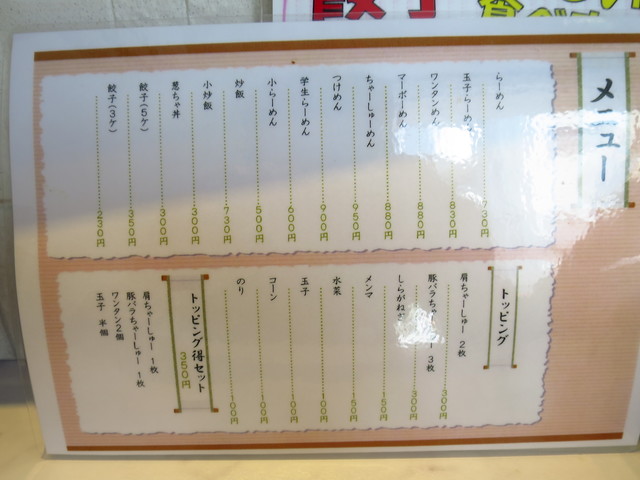 メニュー
らーめん 730円
玉子らーめん 830円
ワンタンめん 880円
マーボーめん 880円
ちゃーしゅーめん 950円
つけめん 900円
学生らーめん 600円
小らーめん 500円
炒飯 730円
小炒飯 300円
葱ちゃ丼 300円
餃子(5ケ) 350円
餃子(3ケ) 230円
トッピング
肩ちゃーしゅー 2枚 300円
豚バラちゃーしゅー 3枚 300円
しらがねぎ 150円
メンマ 150円
水菜 100円
玉子 100円
コーン 100円
のり 100円
トッピング得セット
350円
肩ちゃーしゅー 1枚
豚バラちゃーしゅー 1枚
ワンタン2個
玉子 半個